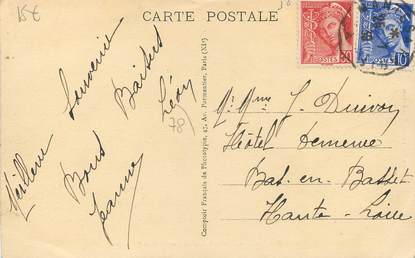 15€
CARTE POSTALE
Meilleurs Souvenirs
Bons Baisers
Jeanne Léon
78
Comptoir Français de Phototypie, 47, Av. Parmentier, Paris (XIe)
POSTES
30
POSTES
10
Mr Mme J.
Hôtel
Bas-en-Basset
Haute-Loire